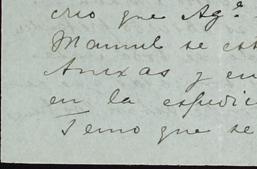 creo que Ag.º
Manuel se est
Anexas y en
en la espedic
Temo que se